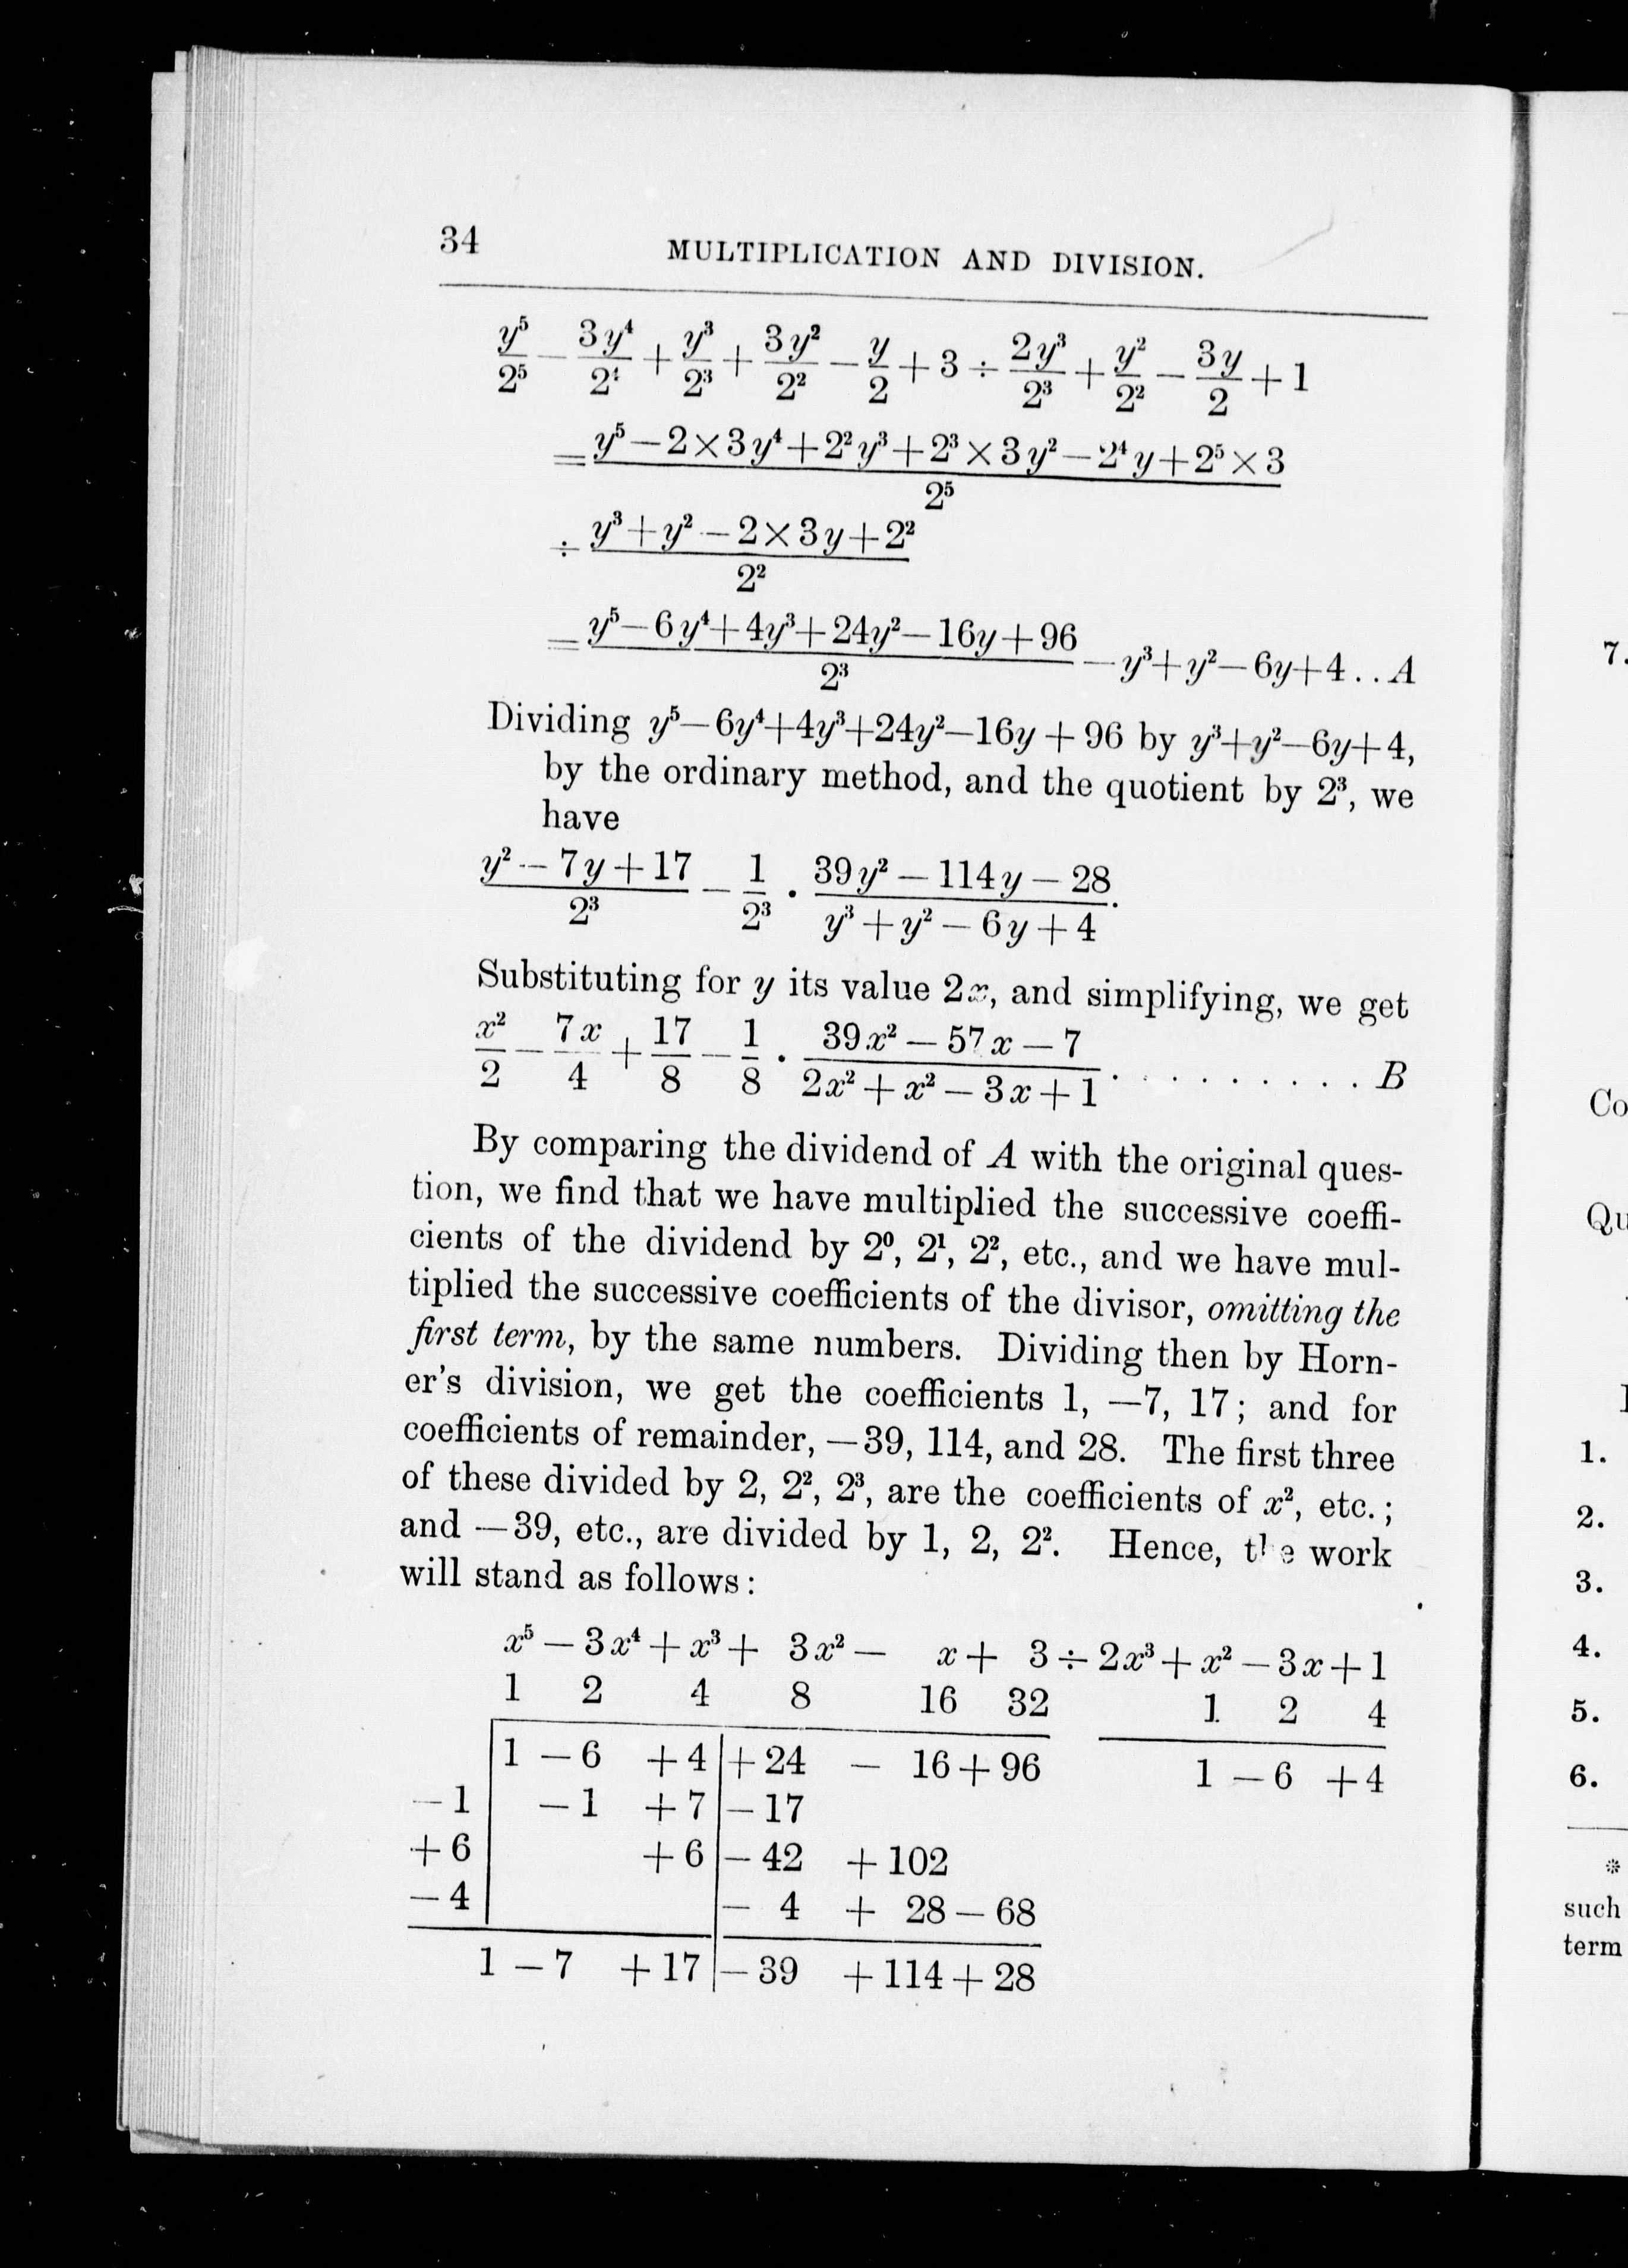 34 MULTIPLICATION AND DIVISION.
y⁵/2⁵ − 3y⁴/2⁴ + y³/2³ + 3y²/2² − y/2 + 3 ÷ 2y³/2³ + y²/2² − 3y/2 + 1
= (y⁵ − 2×3y⁴ + 2²y³ + 2³×3y² − 2⁴y + 2⁵×3)/2⁵
÷ (y³ + y² − 2×3y + 2²)/2²
= (y⁵ − 6y⁴ + 4y³ + 24y² − 16y + 96)/2³ − y³ + y² − 6y + 4 . . A
Dividing y⁵—6y⁴+4y³+24y²—16y + 96 by y³+y²—6y+4,
by the ordinary method, and the quotient by 2³, we
have
(y² − 7y + 17)/2³ − 1/2³ · (39y² − 114y − 28)/(y³ + y² − 6y + 4).
Substituting for y its value 2x, and simplifying, we get
x²/2 − 7x/4 + 17/8 − 1/8 · (39x² − 57x − 7)/(2x² + x² − 3x + 1) . . . . . . . . . . B
By comparing the dividend of A with the original ques-
tion, we find that we have multiplied the successive coeffi-
cients of the dividend by 2⁰, 2¹, 2², etc., and we have mul-
tiplied the successive coefficients of the divisor, omitting the
first term, by the same numbers. Dividing then by Horn-
er's division, we get the coefficients 1, —7, 17; and for
coefficients of remainder, —39, 114, and 28. The first three
of these divided by 2, 2², 2³, are the coefficients of x², etc.;
and —39, etc., are divided by 1, 2, 2². Hence, the work
will stand as follows:
x⁵ − 3x⁴ + x³ + 3x² − x + 3 ÷ 2x³ + x² − 3x + 1
1 2 4 8 16 32 1 2 4
1 − 6 + 4 + 24 − 16 + 96 1 − 6 + 4
− 1 − 1 + 7 − 17
+ 6 + 6 − 42 + 102
− 4 − 4 + 28 − 68
1 − 7 + 17 − 39 + 114 + 28
7.
Co
Qu
1.
2.
3.
4.
5.
6.
*
such
term